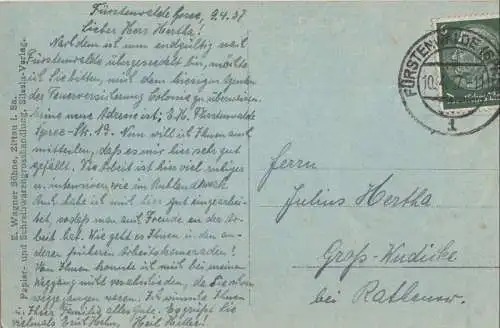 Fürstenwalde Spree, 9.4.37
Lieber Herr Hertha!
Nachdem ich nun endgültig nach
Fürstenwalde übergesiedelt bin, möchte
ich Sie bitten, mich dem hiesigen Agenten
der Feuerversicherung Colonia zu überweisen.
Meine neue Adresse ist: E.H. Fürstenwalde
Spree - 19. Nun will ich Ihnen auch
mitteilen, daß es mir hier sehr gut
gefällt. Die Arbeit ist hier viel ruhiger
u. intensiver, wie im
Auch habe ich mich hier gut eingearbei-
tet, sodaß man auch Freude an der Ar-
beit hat. Wie geht es Ihnen u. den an-
deren früheren Arbeitskameraden!
Von Ihnen konnte ich mich bei meinem
Weggang nicht verabschieden, da Sie schon
weggegangen waren. Ich wünsche Ihnen
u. Ihrer Familie alles Gute. Es grüßt Sie
vielmals Erich Hohn, Heil Hitler!
E. Wagner Söhne, Zittau i. Sa.
Papier- und Schreibwarengrosshandlung. Silesia-Verlag.
FÜRSTENWALDE (S
10.
1
Herrn
Julius Hertha
Groß-Wudicke
bei Rathenow.